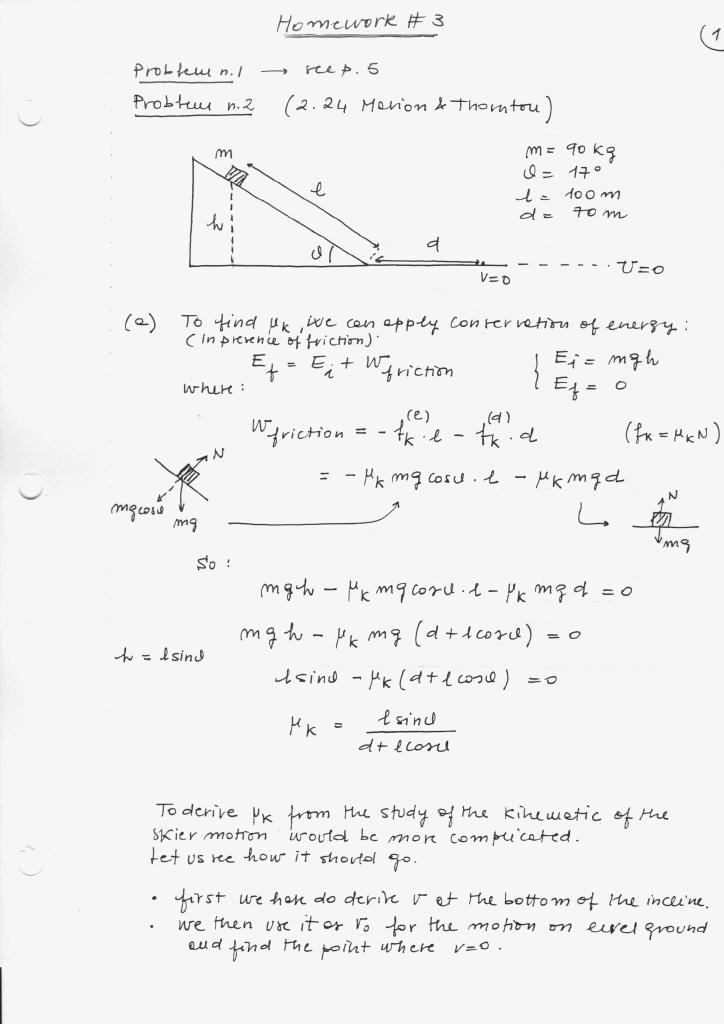 Homework # 3
(1
Problem n.1 → see p. 5
Problem n.2 (2.24 Marion & Thornton)
m
l
h
ϑ
d
v=0
v=0
m = 90 kg
ϑ = 17°
l = 100 m
d = 70 m
(a) To find μk, we can apply conservation of energy:
(in presence of friction).
Ef = Ei + Wfriction { Ei = mgh
where: { Ef = 0
Wfriction = - fk^(l) · l - fk^(d) · d (fk = μk N)
= - μk mg cosϑ · l - μk mg d
N
mg cosϑ
mg
N
mg
So :
mgh - μk mg cosϑ · l - μk mg d = 0
mgh - μk mg (d + l cosϑ) = 0
h = l sinϑ
l sinϑ - μk (d + l cosϑ) = 0
μk = l sinϑ / d + l cosϑ
To derive μk from the study of the kinematic of the
skier motion would be more complicated.
Let us see how it should go.
• first we have do derive v at the bottom of the incline.
• we then use it as v0 for the motion on level ground
and find the point where v=0.